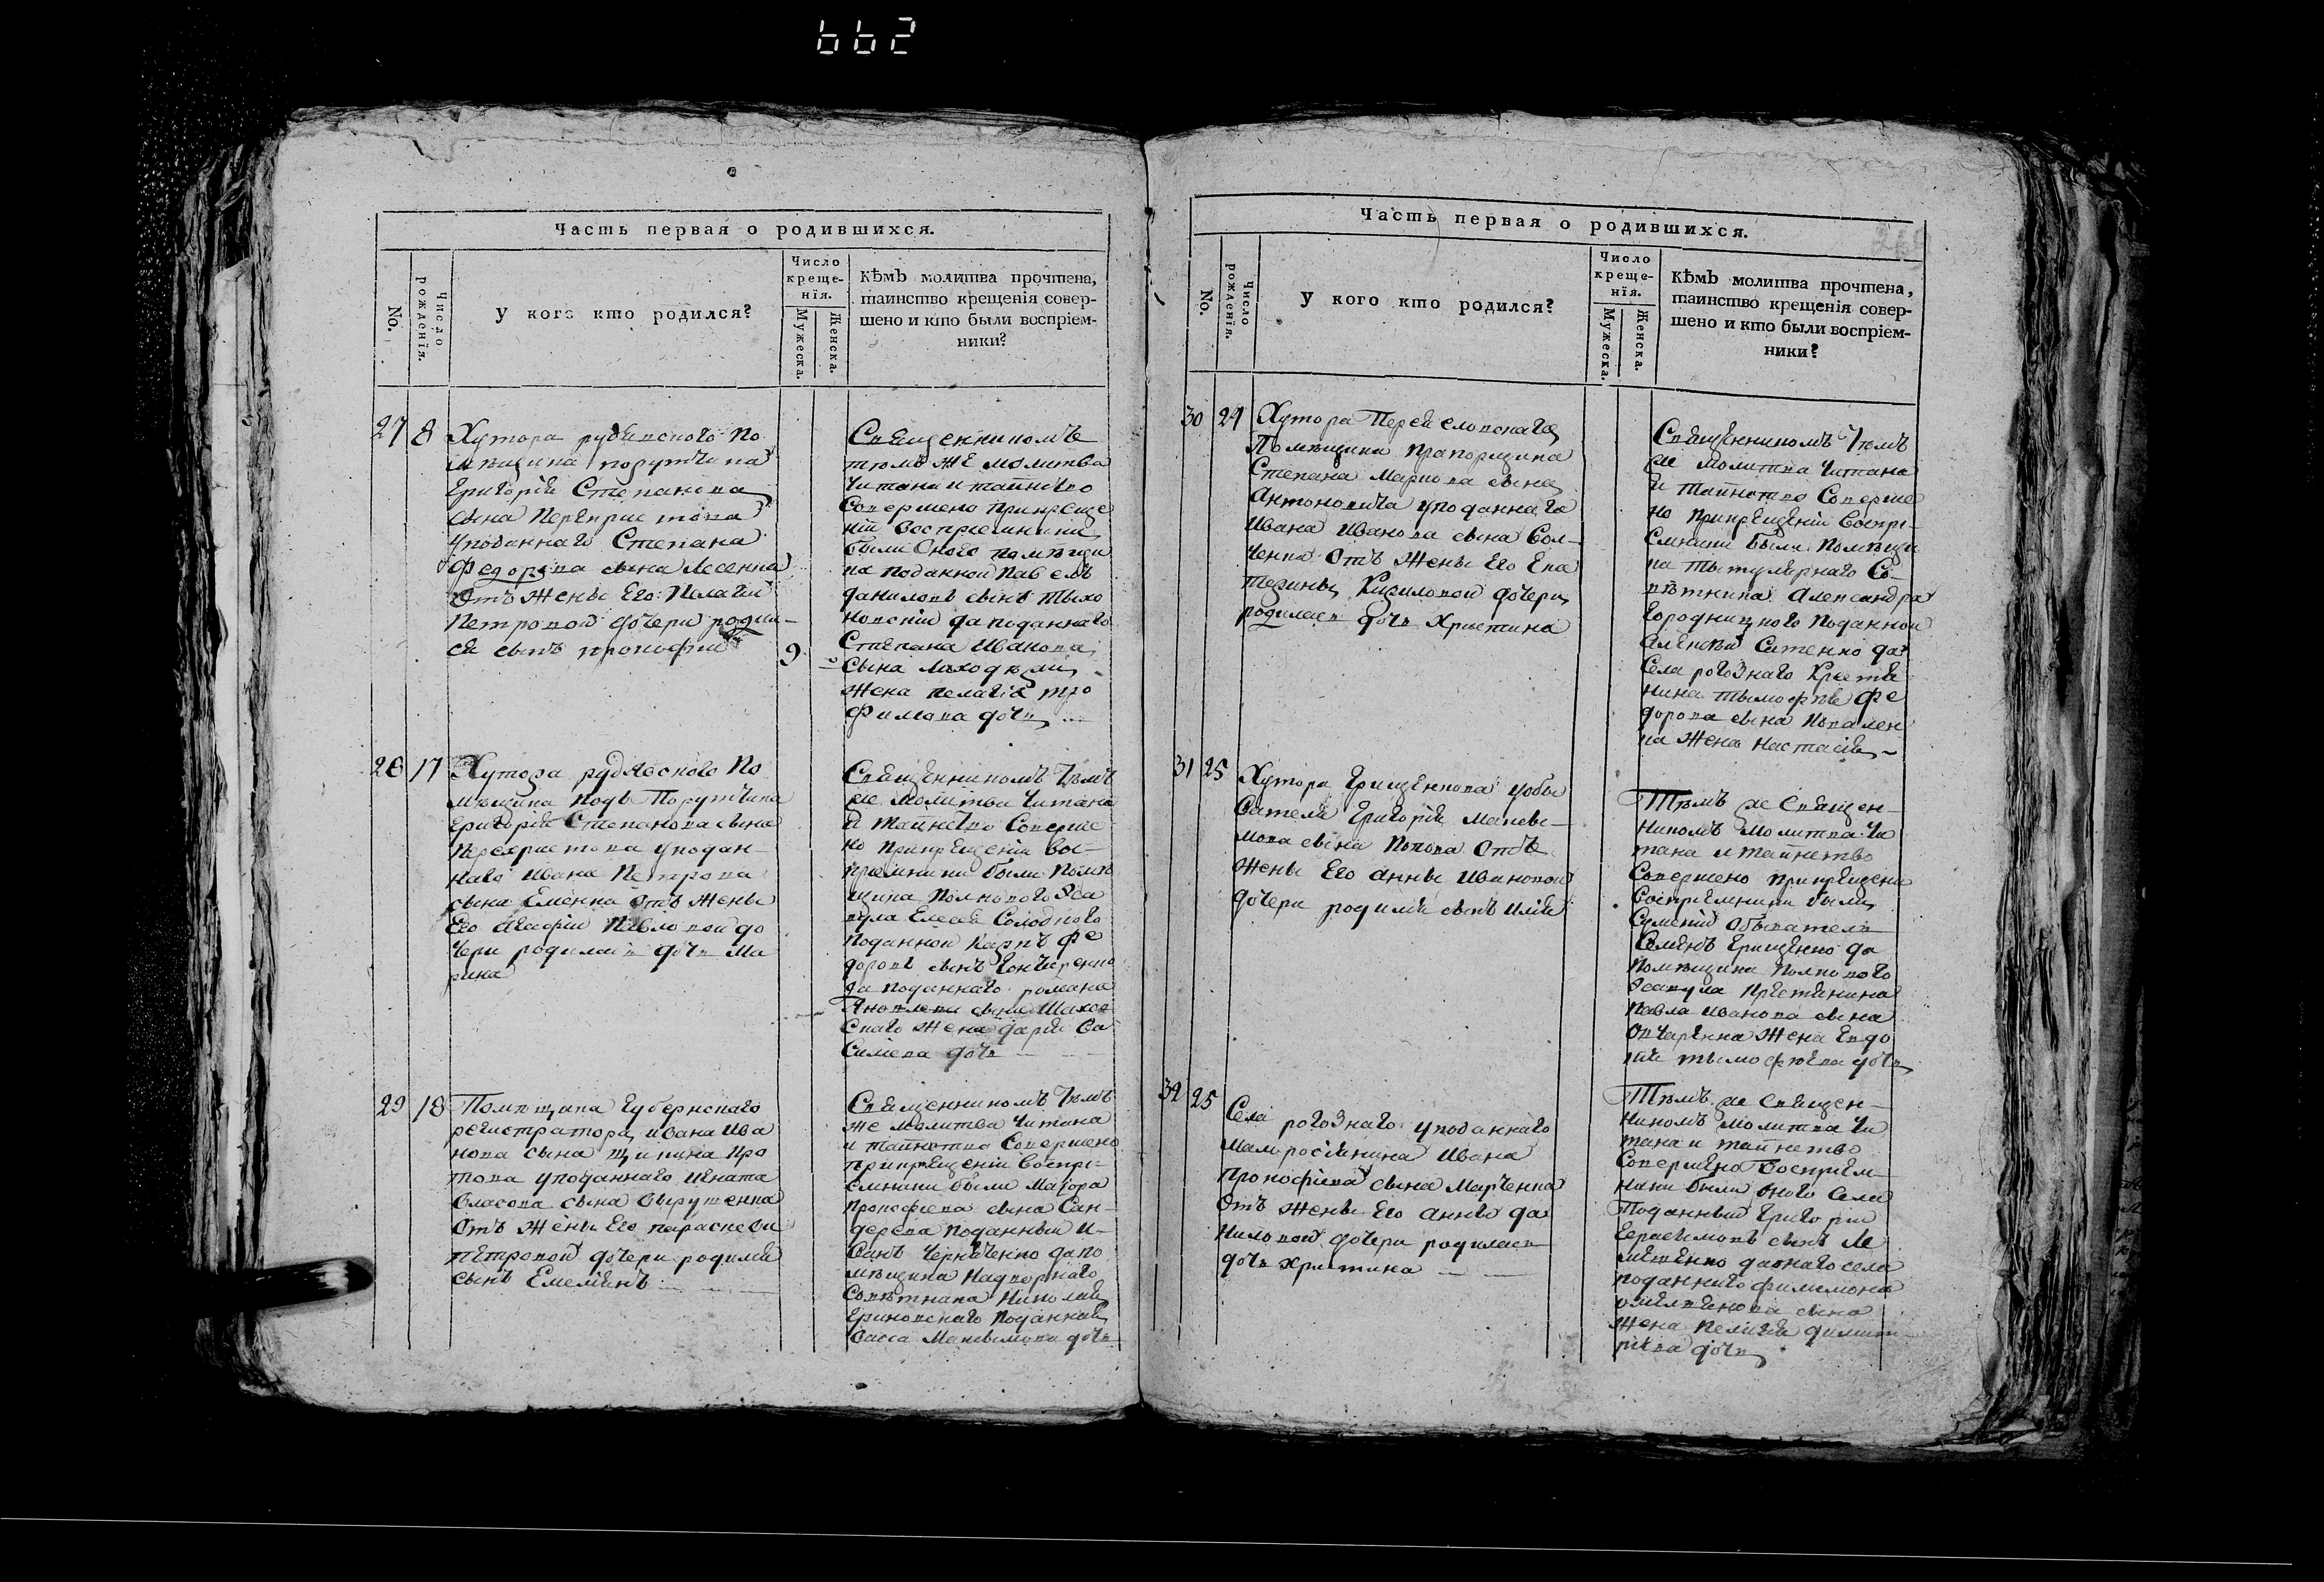 662
Часть первая о родившихся.
No.
Число рожденія.
У кого кто родился?
Число
креще-
нія.
Мужеска.
Женска.
Кѣмъ молитва прочтена,
таинство крещенія совер-
шено и кто были воспріем-
ники?
27 8
Хутора рубанского по
мѣщика порутчика
Григорія Степанова
сына Перекристова
уподаннаго Степана
Федорова сына Лесенка
отъ жены Его Пелагеи
Петровой дочери родил-
ся сынъ прокофий
9
Священникомъ
тѣмъ же молитва
читана и таинство
Совершено прикреще
ніи восприемники
были оного помѣщи
ка поданной Павелъ
даниловъ сынъ Тыхо
новский да поданнаго
Степана Иванова
сына
жена пелагія тро
фимова дочь
28 17
Хутора По
мѣщика Подъ Порутчика
Григорія Степанова сына
Перехристова уподан-
наго Ивана Петрова
сына Еменка отъ жены
Его Агафіи Павловой до
чери родилась дочь Ма
рина
Священникомъ тѣмъ
же молитва читана
и таинство соверше
но прикрещеніи вос-
приемники были помѣ
щика Полкового Эса
вула Елесея Солодного
поданной Карпъ Фе
доровъ сынъ Гончаренко
да поданнаго романа
Яковлева сына Шахов
скаго жена дария Ва
силиева дочь
29 18
Помѣщика Губернскаго
регистратора ивана Ива
нова сына Щикина Про
това уподаннаго Игната
Власова сына Вырушенка
Отъ жены Его параскеви
петровой дочери родился
сынъ Емелиянъ
Священникомъ тѣмъ
же молитва читана
и таинство Совершено
прикрещеніи воспри-
емники были Маіора
Прокофиева сына Сан-
дерева поданный И-
санъ Черниченко да по
мѣщика Надворнаго
Совѣтника Николая
поданной
Васса Макъсимова дочь
Часть первая о родившихся.
No.
Число рожденія.
У кого кто родился?
Число
креще-
нія.
Мужеска.
Женска.
Кѣмъ молитва прочтена,
таинство крещенія совер-
шено и кто были воспріем-
ники?
30 24
Хутора Перей словскаго
Помѣщика прапорщика
Степана Маркова сына
Антоновича уподаннаго
Ивана Иванова сына Вол-
ченка Отъ жены Его Ека
терины Кириловой дочери
родилась дочь Христина
Священникомъ тѣмъ
же молитва читана
и таинство соверше
но прикрещеніи воспри-
емники были помѣщи
ка Тытулярнаго Со-
вѣтника Александра
Городницкого поданной
Алексѣй Ситенко да
Села рогознаго Крестя
нина Тымофѣя Фе
дорова сына Ковален
ка жена Настасия
31 25
Хутора Грищенкова уобы
вателя Григорія Максы-
мова сына Попова Отъ
жены Его Анны Ивановой
дочери родился сынъ Илія
Тѣмъ же священ-
никомъ молитва чи
тана и таинство
Совершено прикрещении
Восприемники были
Сумский обыватель
Семенъ Грищенко да
Помѣщика Полкового
Эсавула Крестянина
Павла Иванова сына
Овчаренка жена Евдо
кия тымофѣева дочь
32 25
Села рогознаго уподаннаго
малоросиянина Ивана
Прокофиева сына Марченка
Отъ жены Его Анны Да
ниловой дочери родилась
дочь христина
Тѣмъ же священ-
никомъ молитва чи
тана и таинство
Совершено восприем-
ники были оного Села
Поданный Григорий
Герасимовъ сынъ
да онаго села
поданнаго филимона
сына
жена Пелагея димит
риева дочь